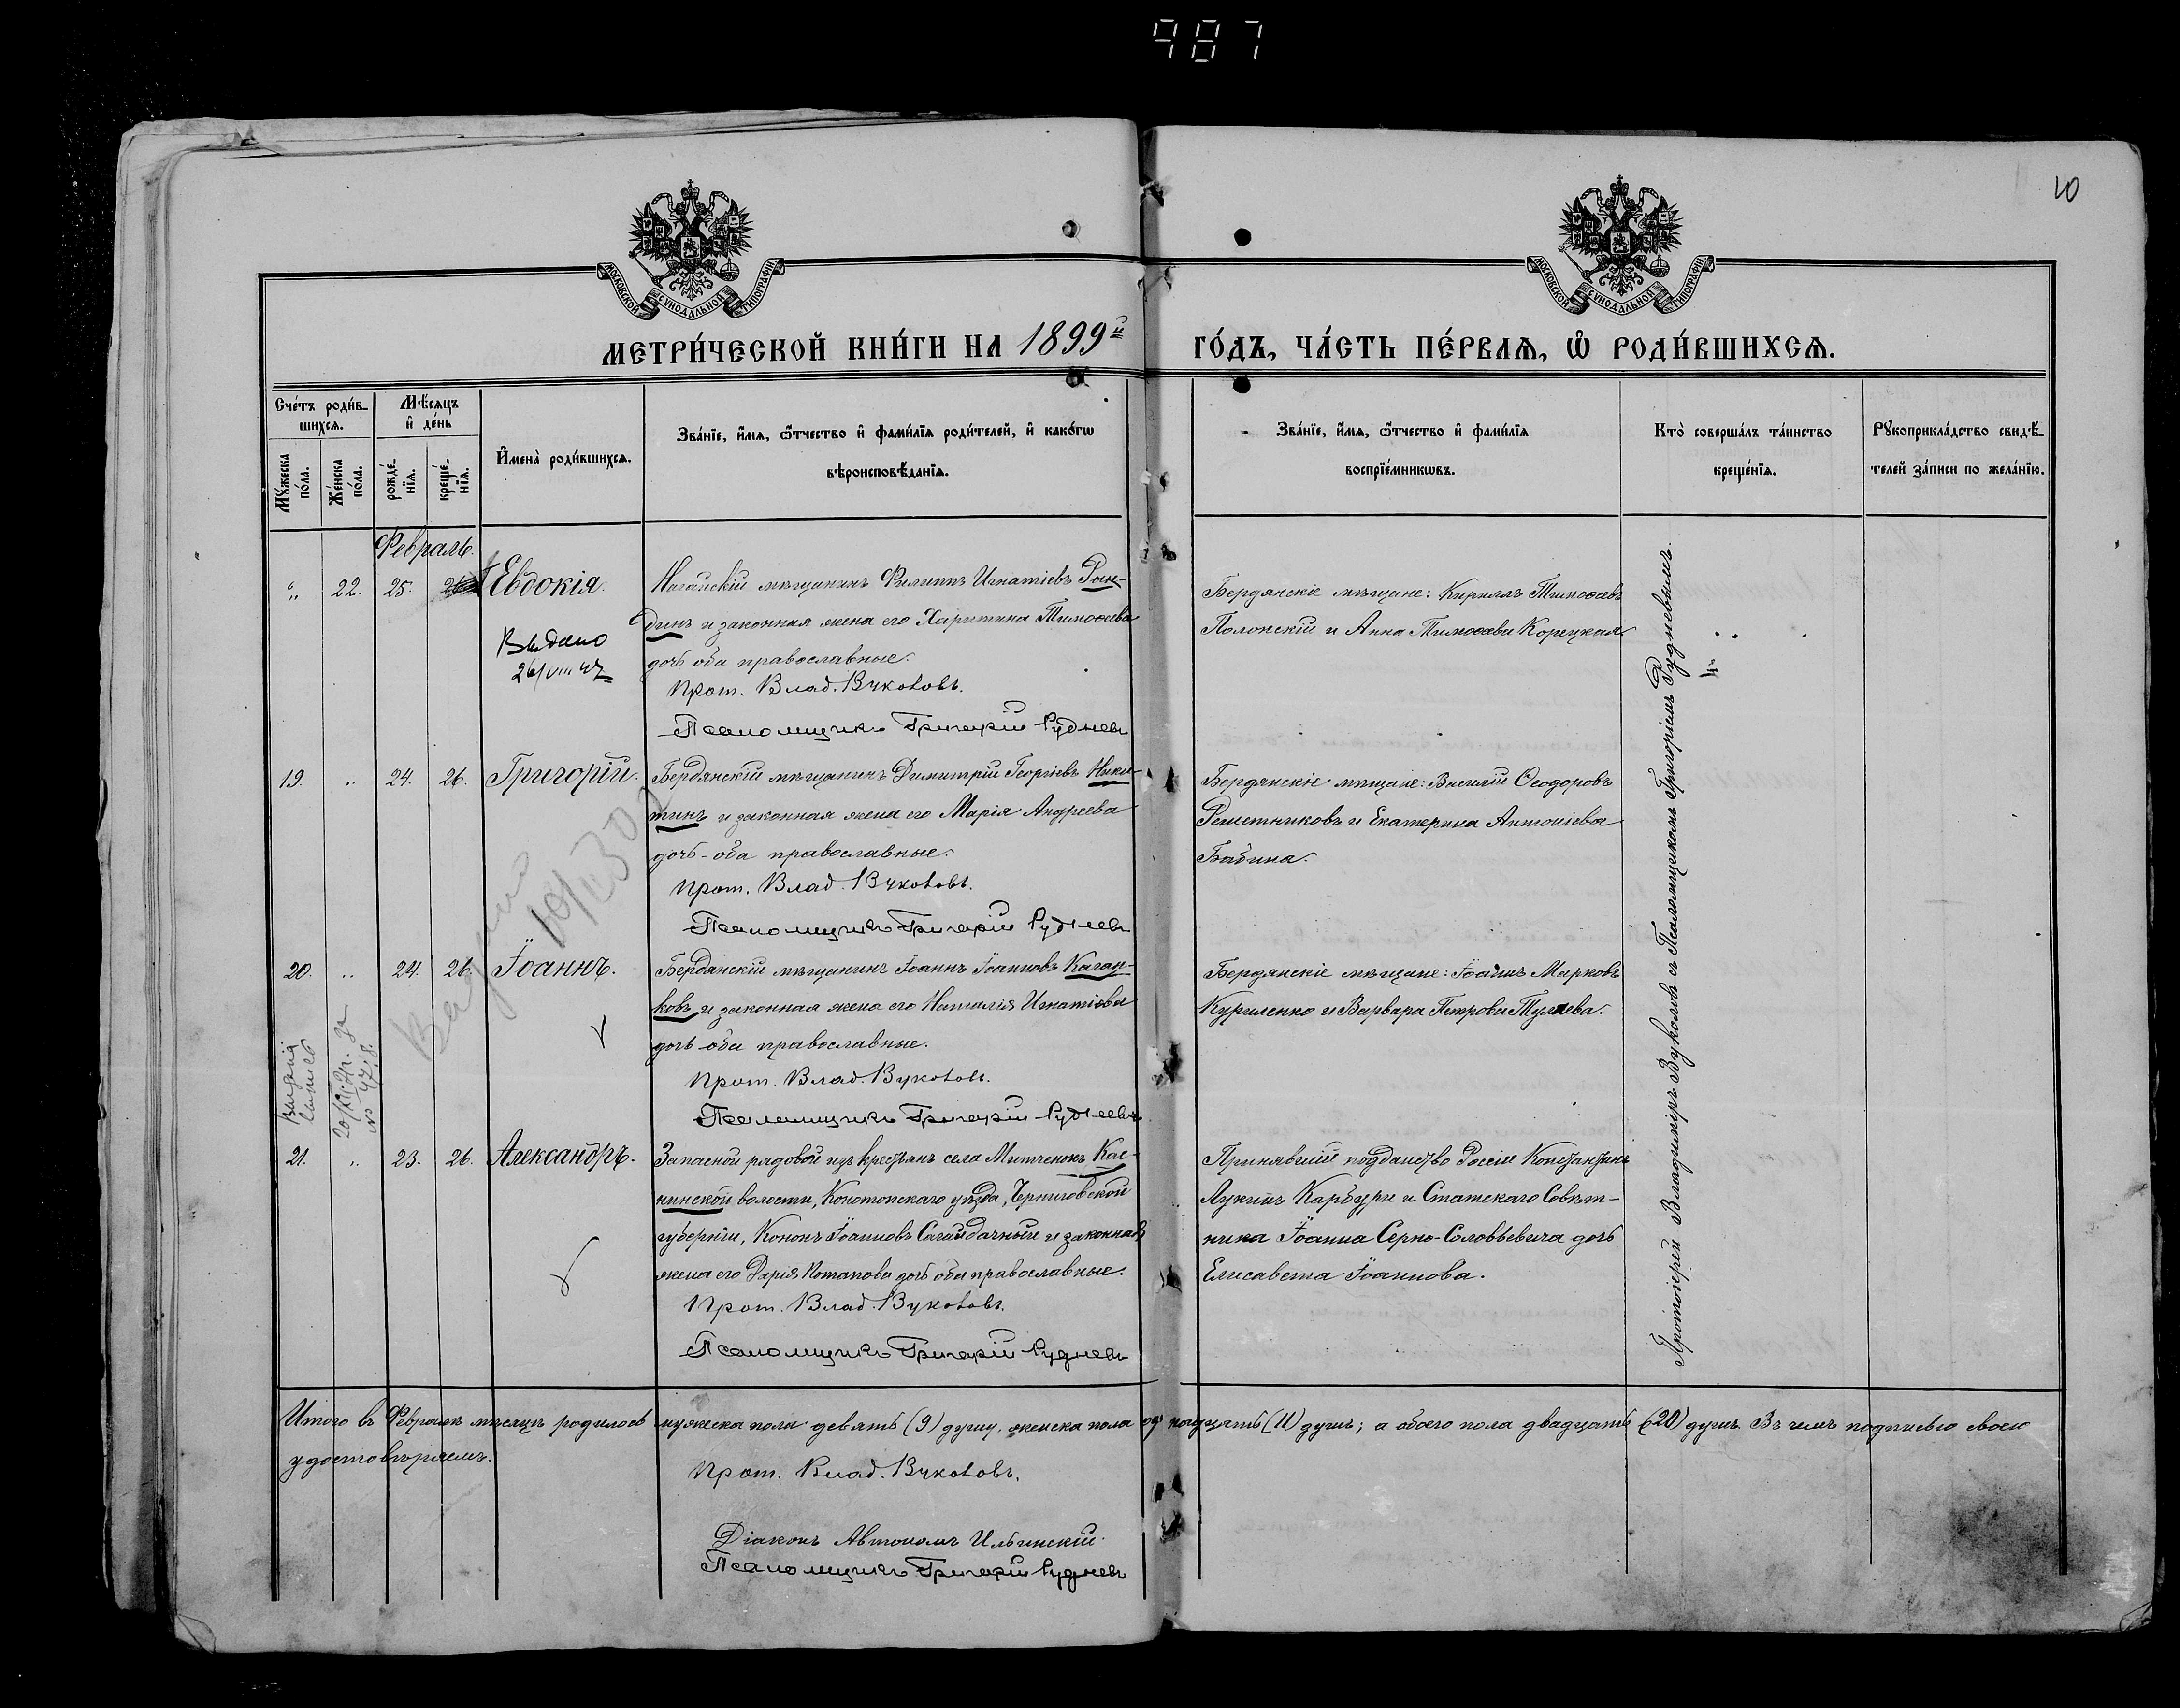 987
10
МОСКОВСКОЙ СѴНОДАЛЬНОЙ ТИПОГРАФІИ
МОСКОВСКОЙ СѴНОДАЛЬНОЙ ТИПОГРАФІИ
МЕТРИ́ЧЕСКОЙ КНИ́ГИ НА 1899й ГО́ДЪ, ЧА́СТЬ ПЕ́РВАѦ, Ѡ҆ РОДИ́ВШИХСѦ.
Сче́тъ роди́в-
шихсѧ.
Мѣ́сѧцъ
и҆ де́нь
Мꙋ́жеска
по́ла.
Же́нска
по́ла.
рожде́-
нїѧ.
креще́-
нїѧ.
И҆мена̀ роди́вшихсѧ.
Зва́нїе, и҆́мѧ, ѻ҆́тчество и҆ фами́лїѧ роди́телей, и҆ како́гѡ
вѣроисповѣ́данїѧ.
Зва́нїе, и҆́мѧ, ѻ҆́тчество и҆ фами́лїѧ
воспрїе́мникѡвъ.
Кто̀ соверша́лъ та́инство
креще́нїѧ.
Рꙋкоприкла́дство свидѣ́-
телей за́писи по жела́нїю.
Февраль.
„ 22. 25. Евдокія. Ногайскій мѣщанинъ Филиппъ Игнатіевъ Рын-
динъ и законная жена его Харитина Тимоѳеева
дочь оба православные.
Прот. Влад. Вуколовъ.
Псаломщикъ Григорій Рудневъ
Выдано
26/VIII 47
Бердянскіе мѣщане: Кириллъ Тимоѳеевъ
Полонскій и Анна Тимоѳеева Корецкая
19. „ 24. 26. Григорій. Бердянскій мѣщанинъ Димитрій Георгіевъ Ники-
тинъ и законная жена его Марія Андреева
дочь - оба православные.
Прот. Влад. Вуколовъ.
Псаломщикъ Григорій Рудневъ
Бердянскіе мѣщане: Василій Ѳеодоровъ
Решетниковъ и Екатерина Антоніева
Бабина.
20. „ 24. 26. Іоаннъ. Бердянскій мѣщанинъ Іоаннъ Іоанновъ Каган-
ковъ и законная жена его Наталія Игнатіева
дочь - оба православные.
Прот. Влад. Вуколовъ.
Псаломщикъ Григорій Рудневъ
Бердянскіе мѣщане: Іоаннъ Марковъ
Куриленко и Варвара Петрова Туляева.
21. „ 23. 26. Александръ. Запасной рядовой изъ крестьянъ села Митченокъ Кас-
нинской волости, Конотопскаго уѣзда, Черниговской
губерніи, Кононъ Іоанновъ Сагайдачный и законная
жена его Дарія Потапова дочь оба православные.
Прот. Влад. Вуколовъ.
Псаломщикъ Григорій Рудневъ
Принявшій подданство Россіи Константинъ
Лукинъ Карбури и Статскаго Совѣт-
ника Іоанна Серно-Соловьевича дочь
Елисавета Іоаннова.
Протоіерей Владиміръ Вуколовъ съ Псаломщикомъ Григоріемъ Рудневымъ.
Итого въ Февралѣ мѣсяцѣ родилось мужеска пола девять (9) душъ, женска пола одиннадцать (11) душъ; а обоего пола двадцать (20) душъ. Въ чемъ подписью своею
удостовѣряемъ.
Прот. Влад. Вуколовъ.
Діаконъ Автономъ Ильинскій.
Псаломщикъ Григорій Рудневъ